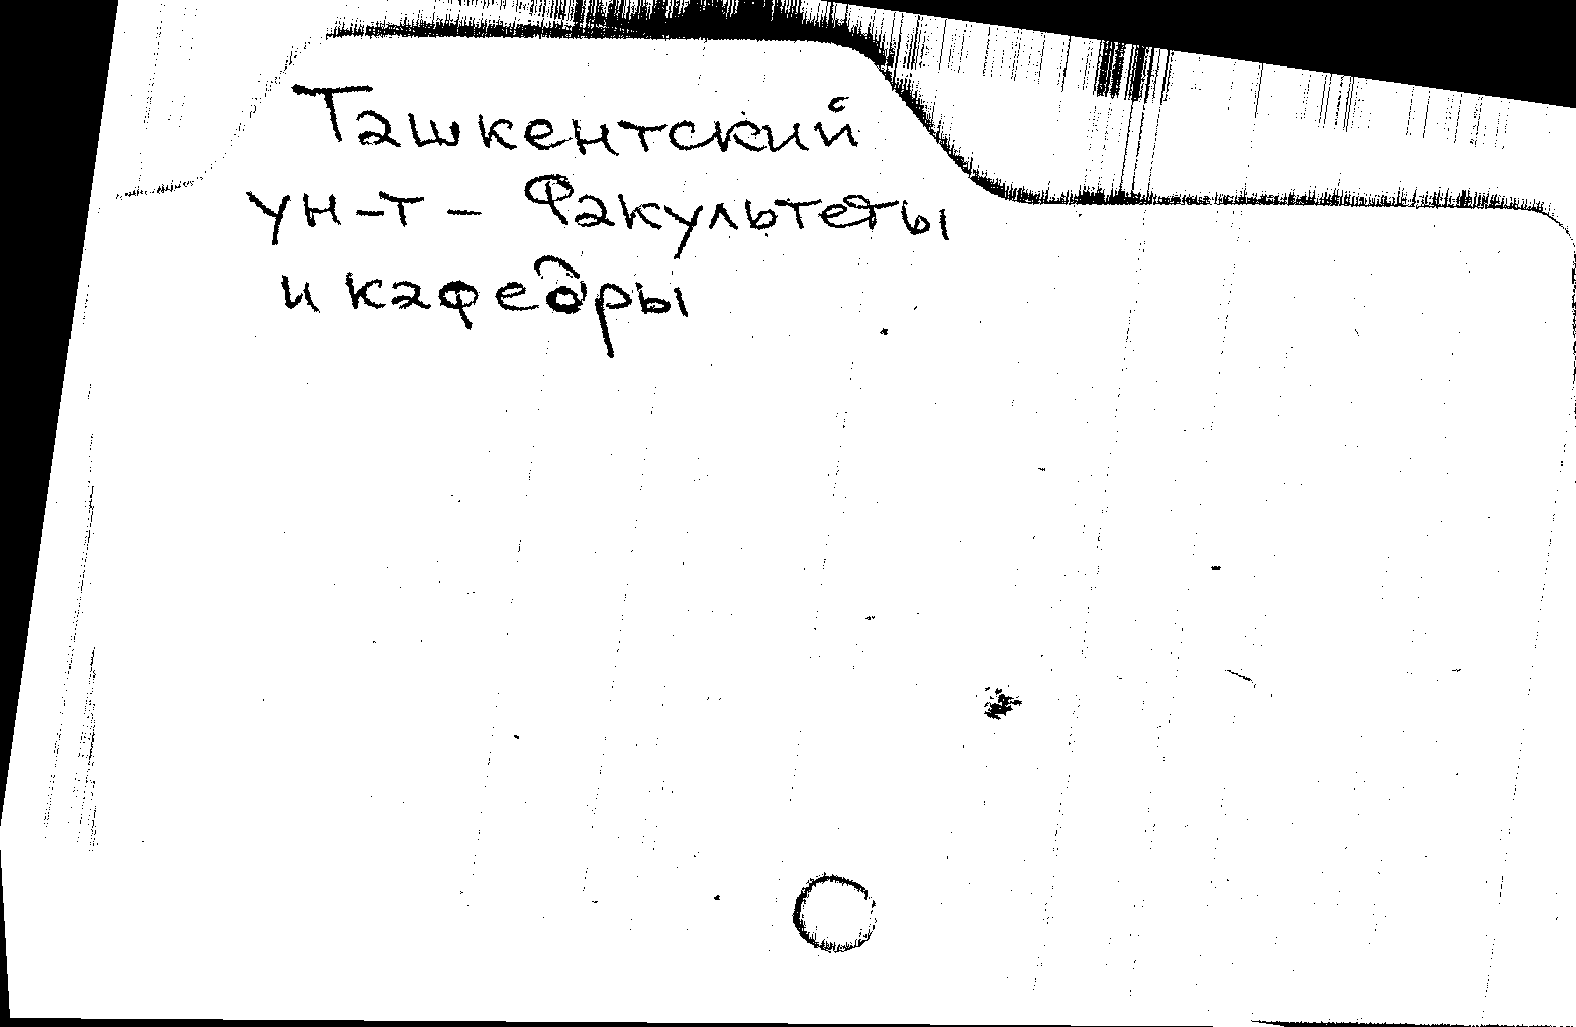 Ташкентский
ун-т - Факультеты
и кафедры